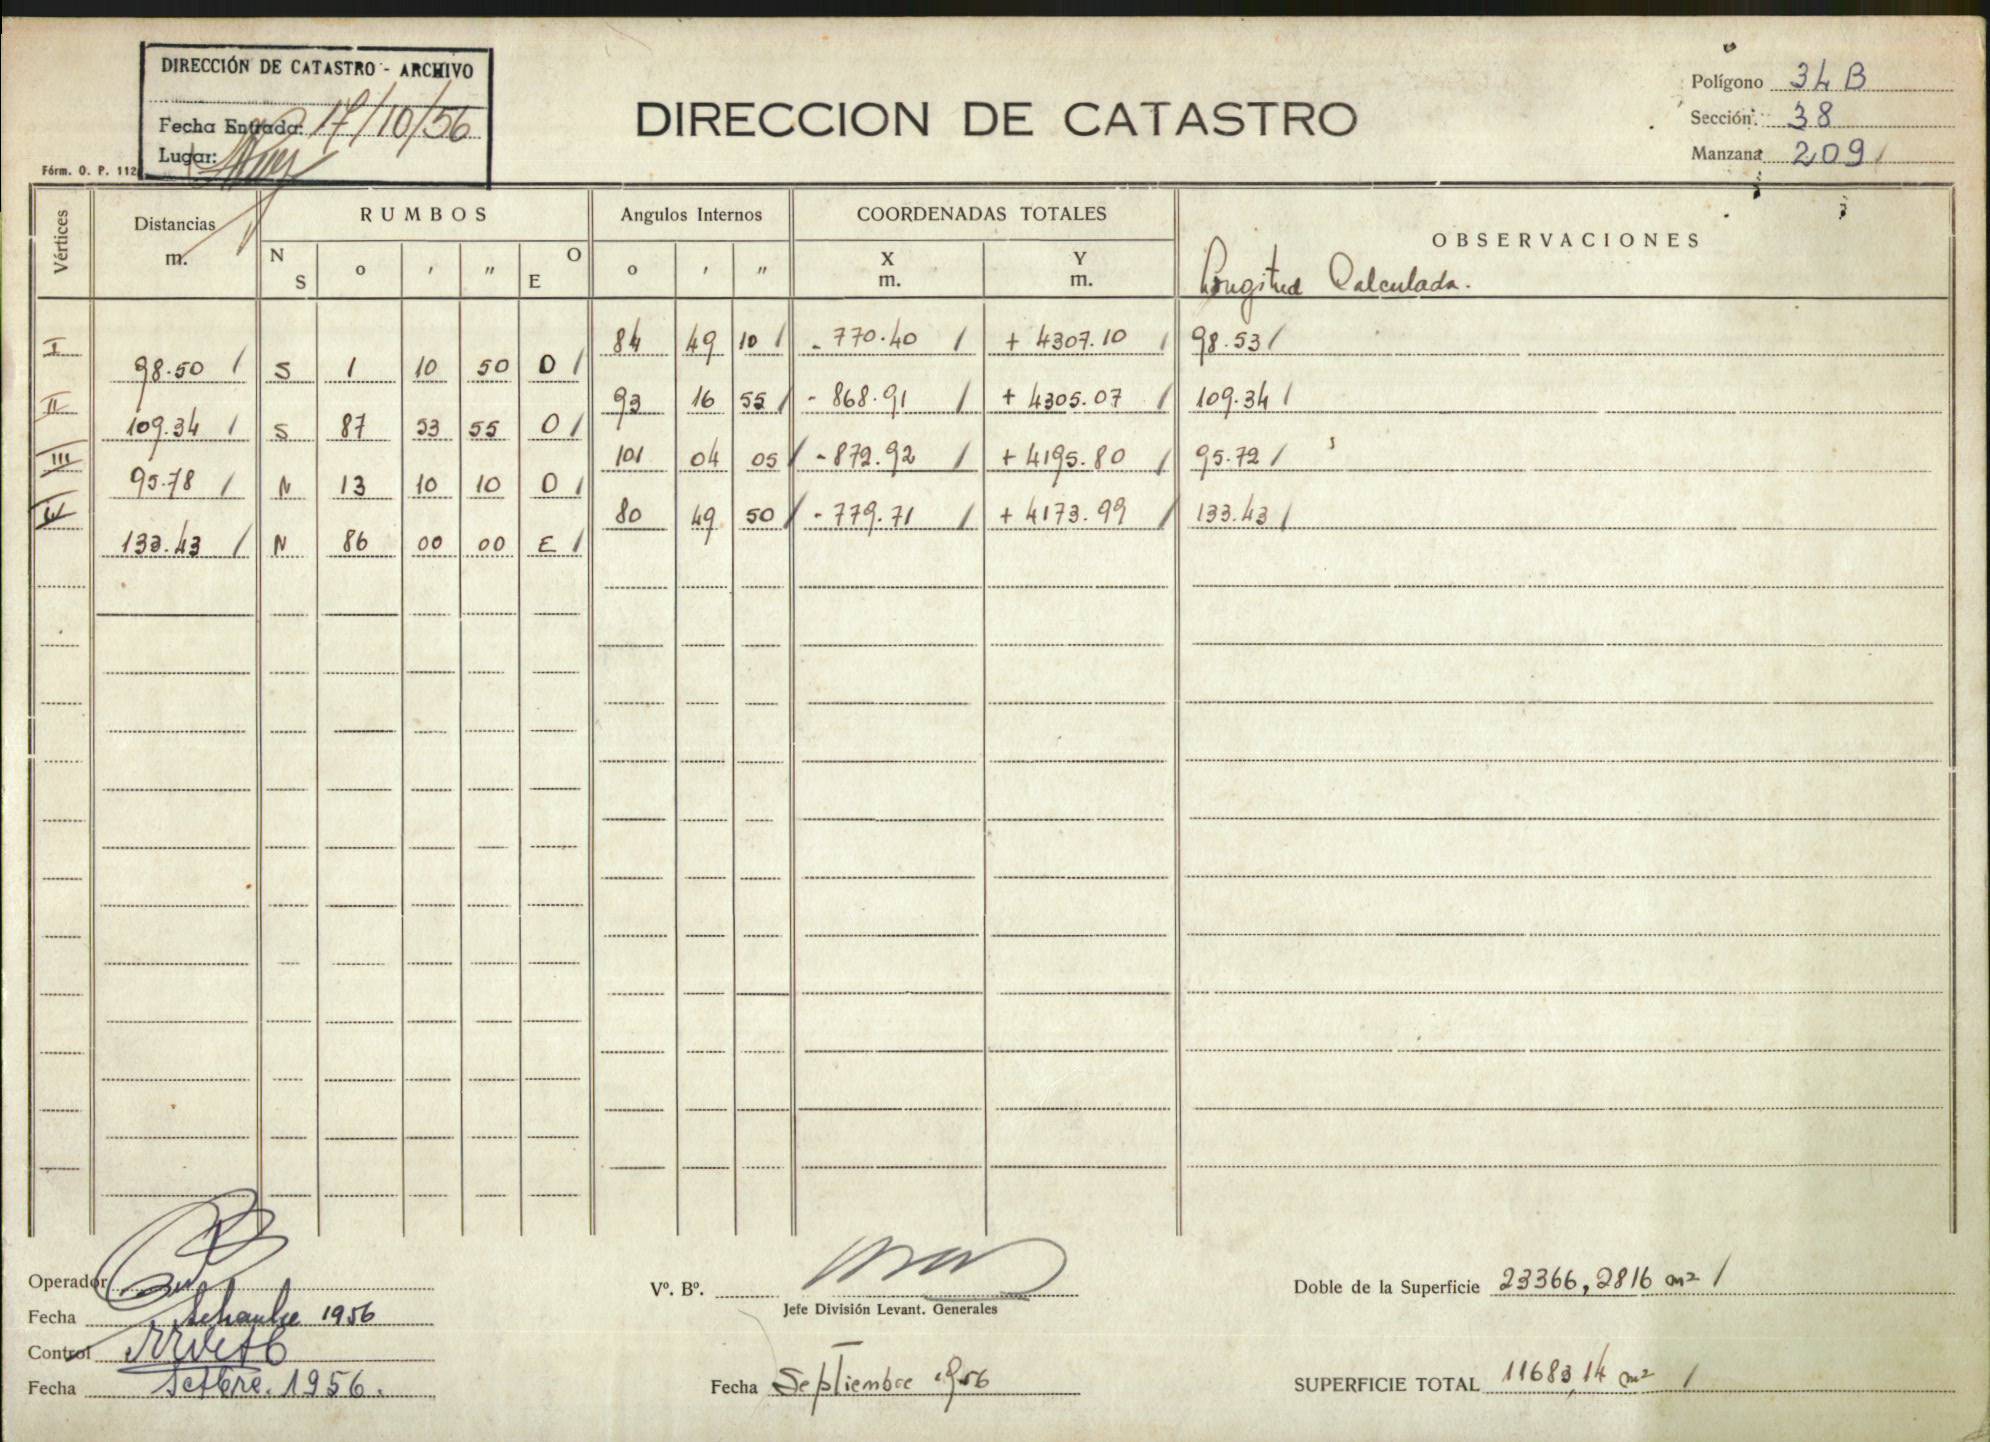 DIRECCIÓN DE CATASTRO - ARCHIVO
Fecha Entrada: 17/10/56
Lugar:
Fórm. O. P. 112
DIRECCION DE CATASTRO
Polígono 34 B
Sección: 38
Manzana 209
Vértices Distancias m. RUMBOS Angulos Internos COORDENADAS TOTALES OBSERVACIONES
N S o ' " O E o ' " X m. Y m. Longitud Calculada.
I 84 49 10 - 770.40 + 4307.10 98.53
98.50 S 1 10 50 O
II 93 16 55 - 868.91 + 4305.07 109.34
109.34 S 87 53 55 O
III 101 04 05 - 872.92 + 4195.80 95.72
95.78 N 13 10 10 O
IV 80 49 50 - 779.71 + 4173.99 133.43
133.43 N 86 00 00 E
Operador
Fecha 1956
Control
Fecha Setbre. 1956.
Vº. Bº.
Jefe División Levant. Generales
Fecha Septiembre 1956
Doble de la Superficie 23366,2816 m2
SUPERFICIE TOTAL 11683,14 m2